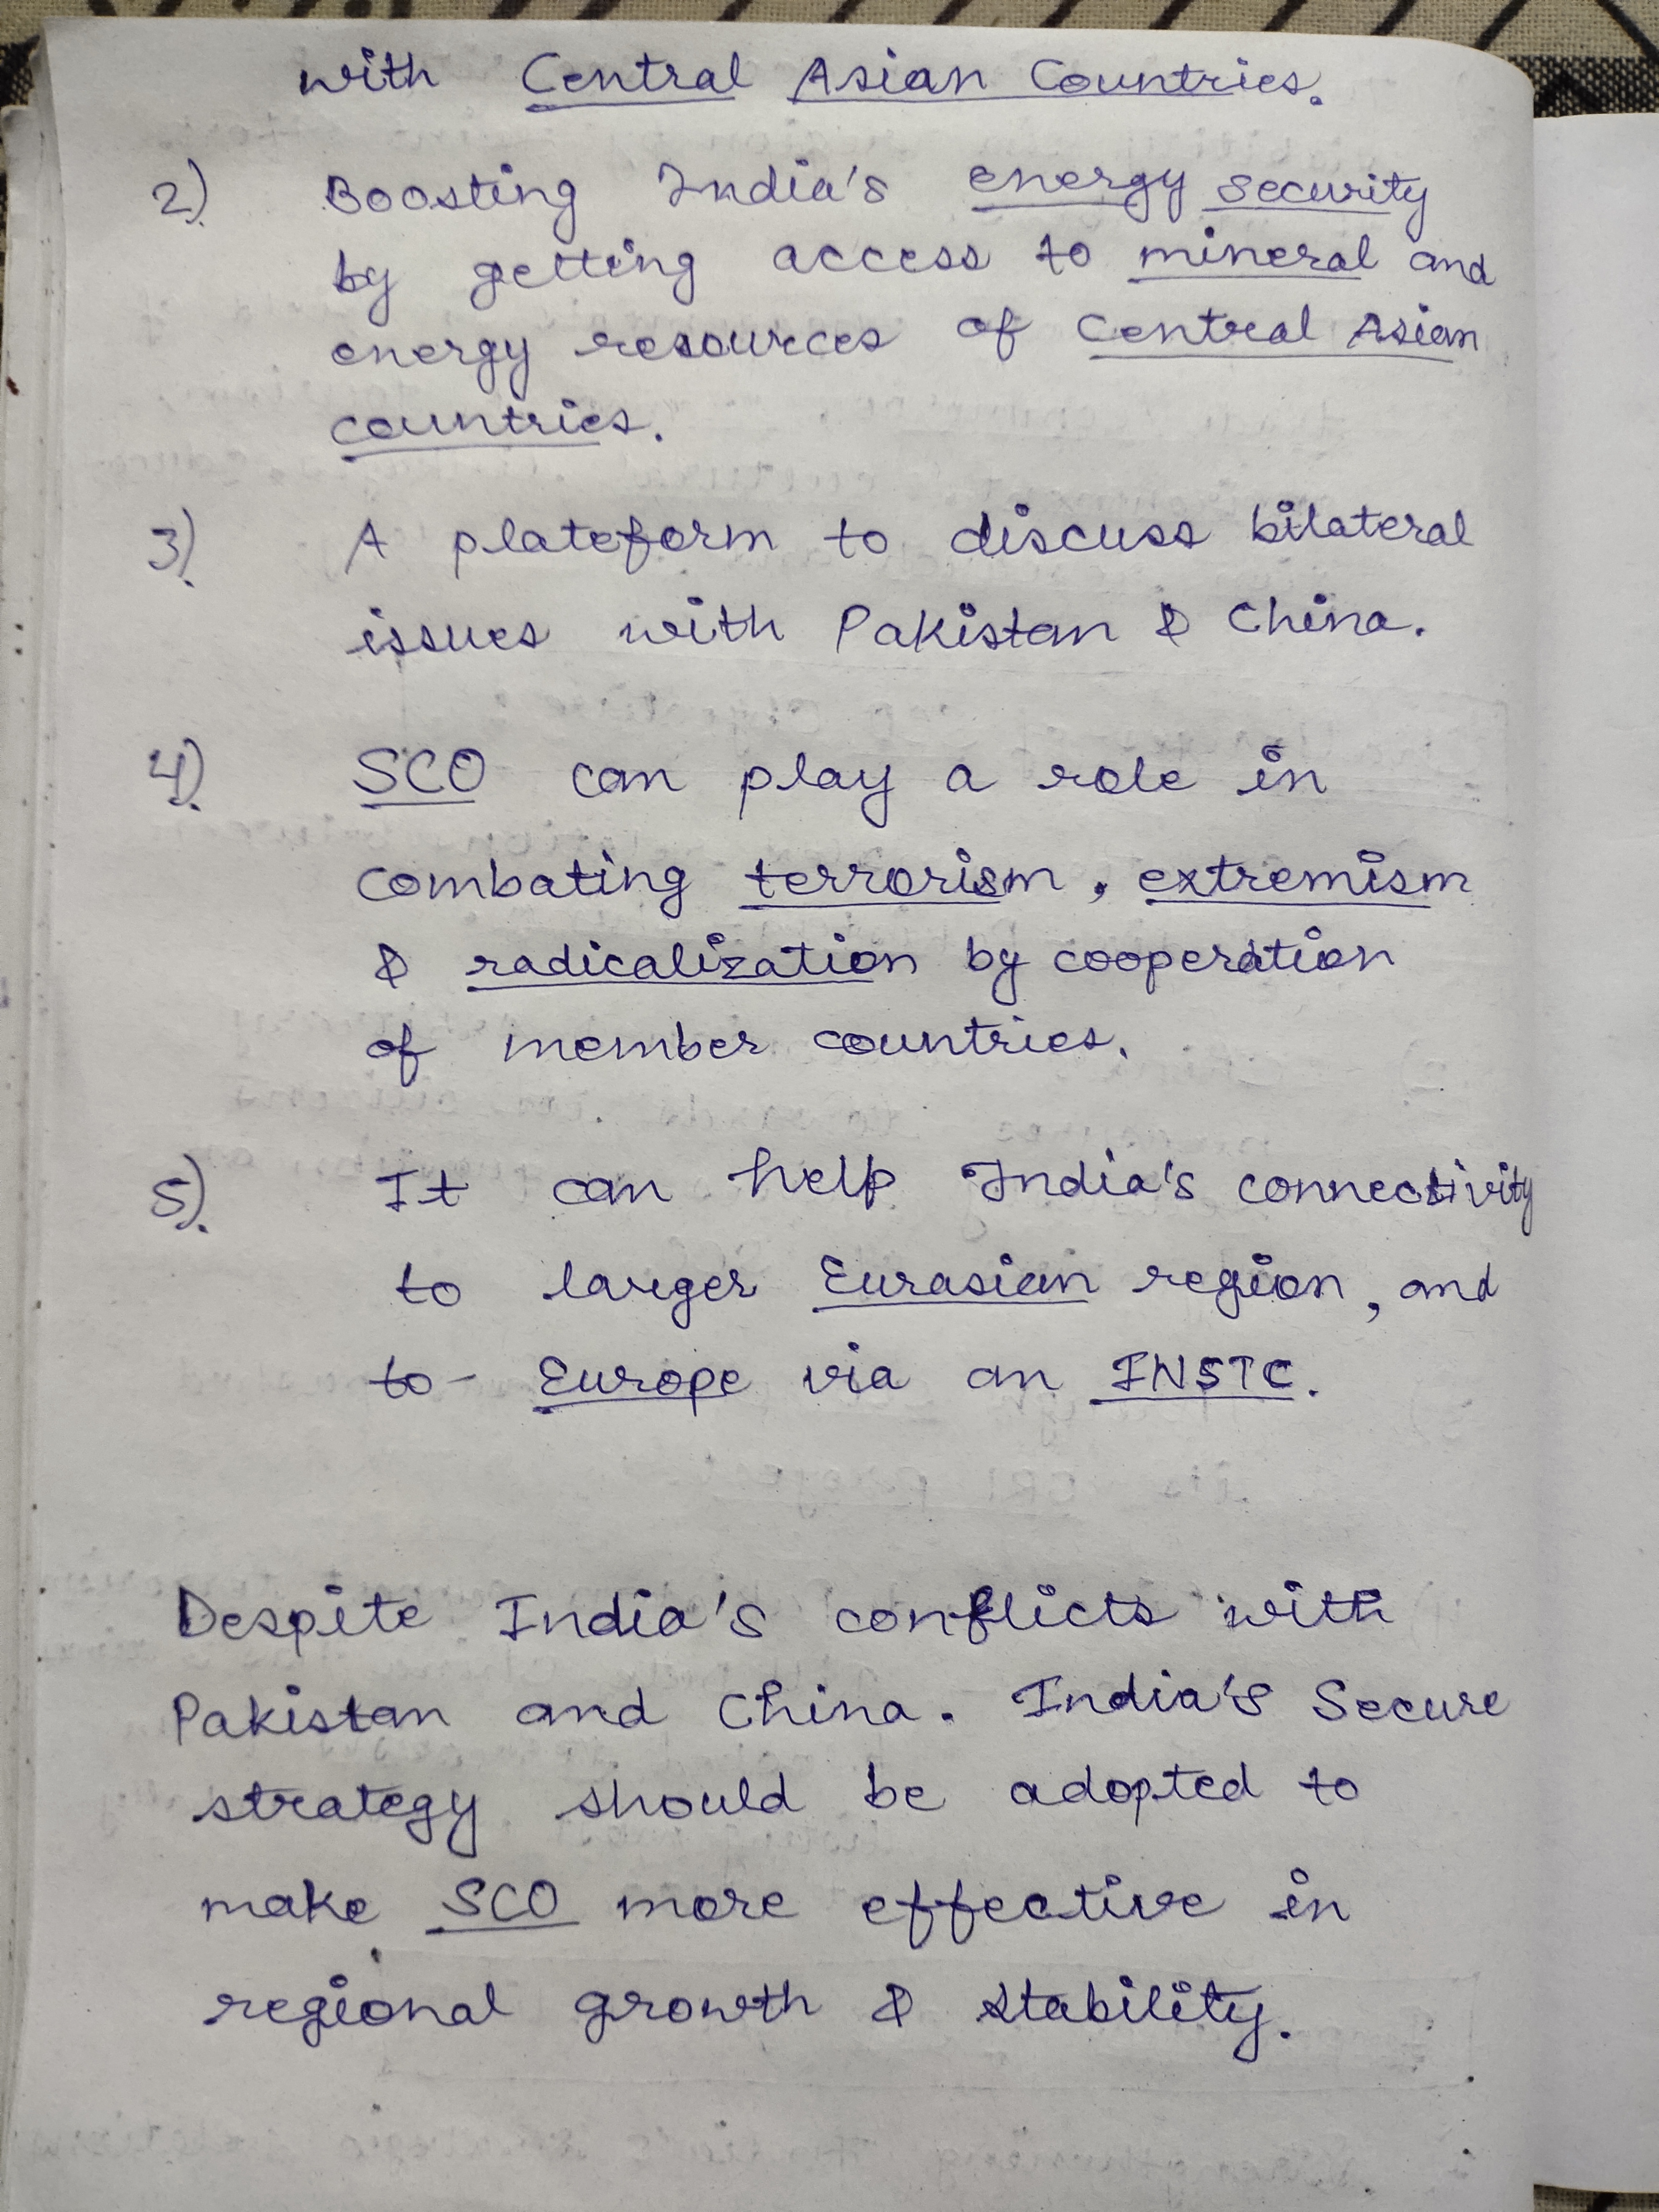 with Central Asian Countries.
2) Boosting India's energy security
by getting access to mineral and
energy resources of Central Asian
countries.
3) A plateform to discuss bilateral
issues with Pakistan & China.
4) SCO can play a role in
combating terrorism, extremism
& radicalization by cooperation
of member countries.
5) It can help India's connectivity
to larger Eurasian region, and
to - Europe via an INSTC.
Despite India's conflicts with
Pakistan and China. India's Secure
strategy should be adopted to
make SCO more effective in
regional growth & stability.